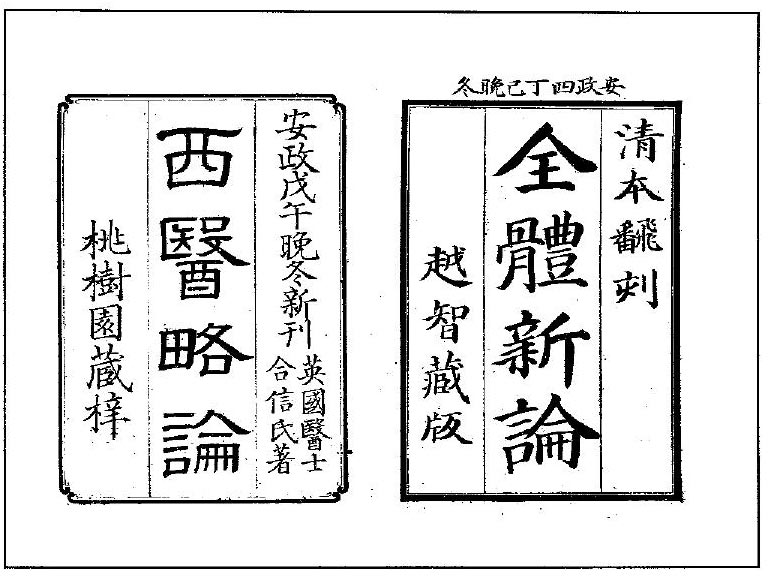 安政四丁已晩冬
清本飜刻
全體新論
越智藏版
安政戊午晩冬新刊
英國醫士
合信氏著
西醫略論
桃樹園蔵梓